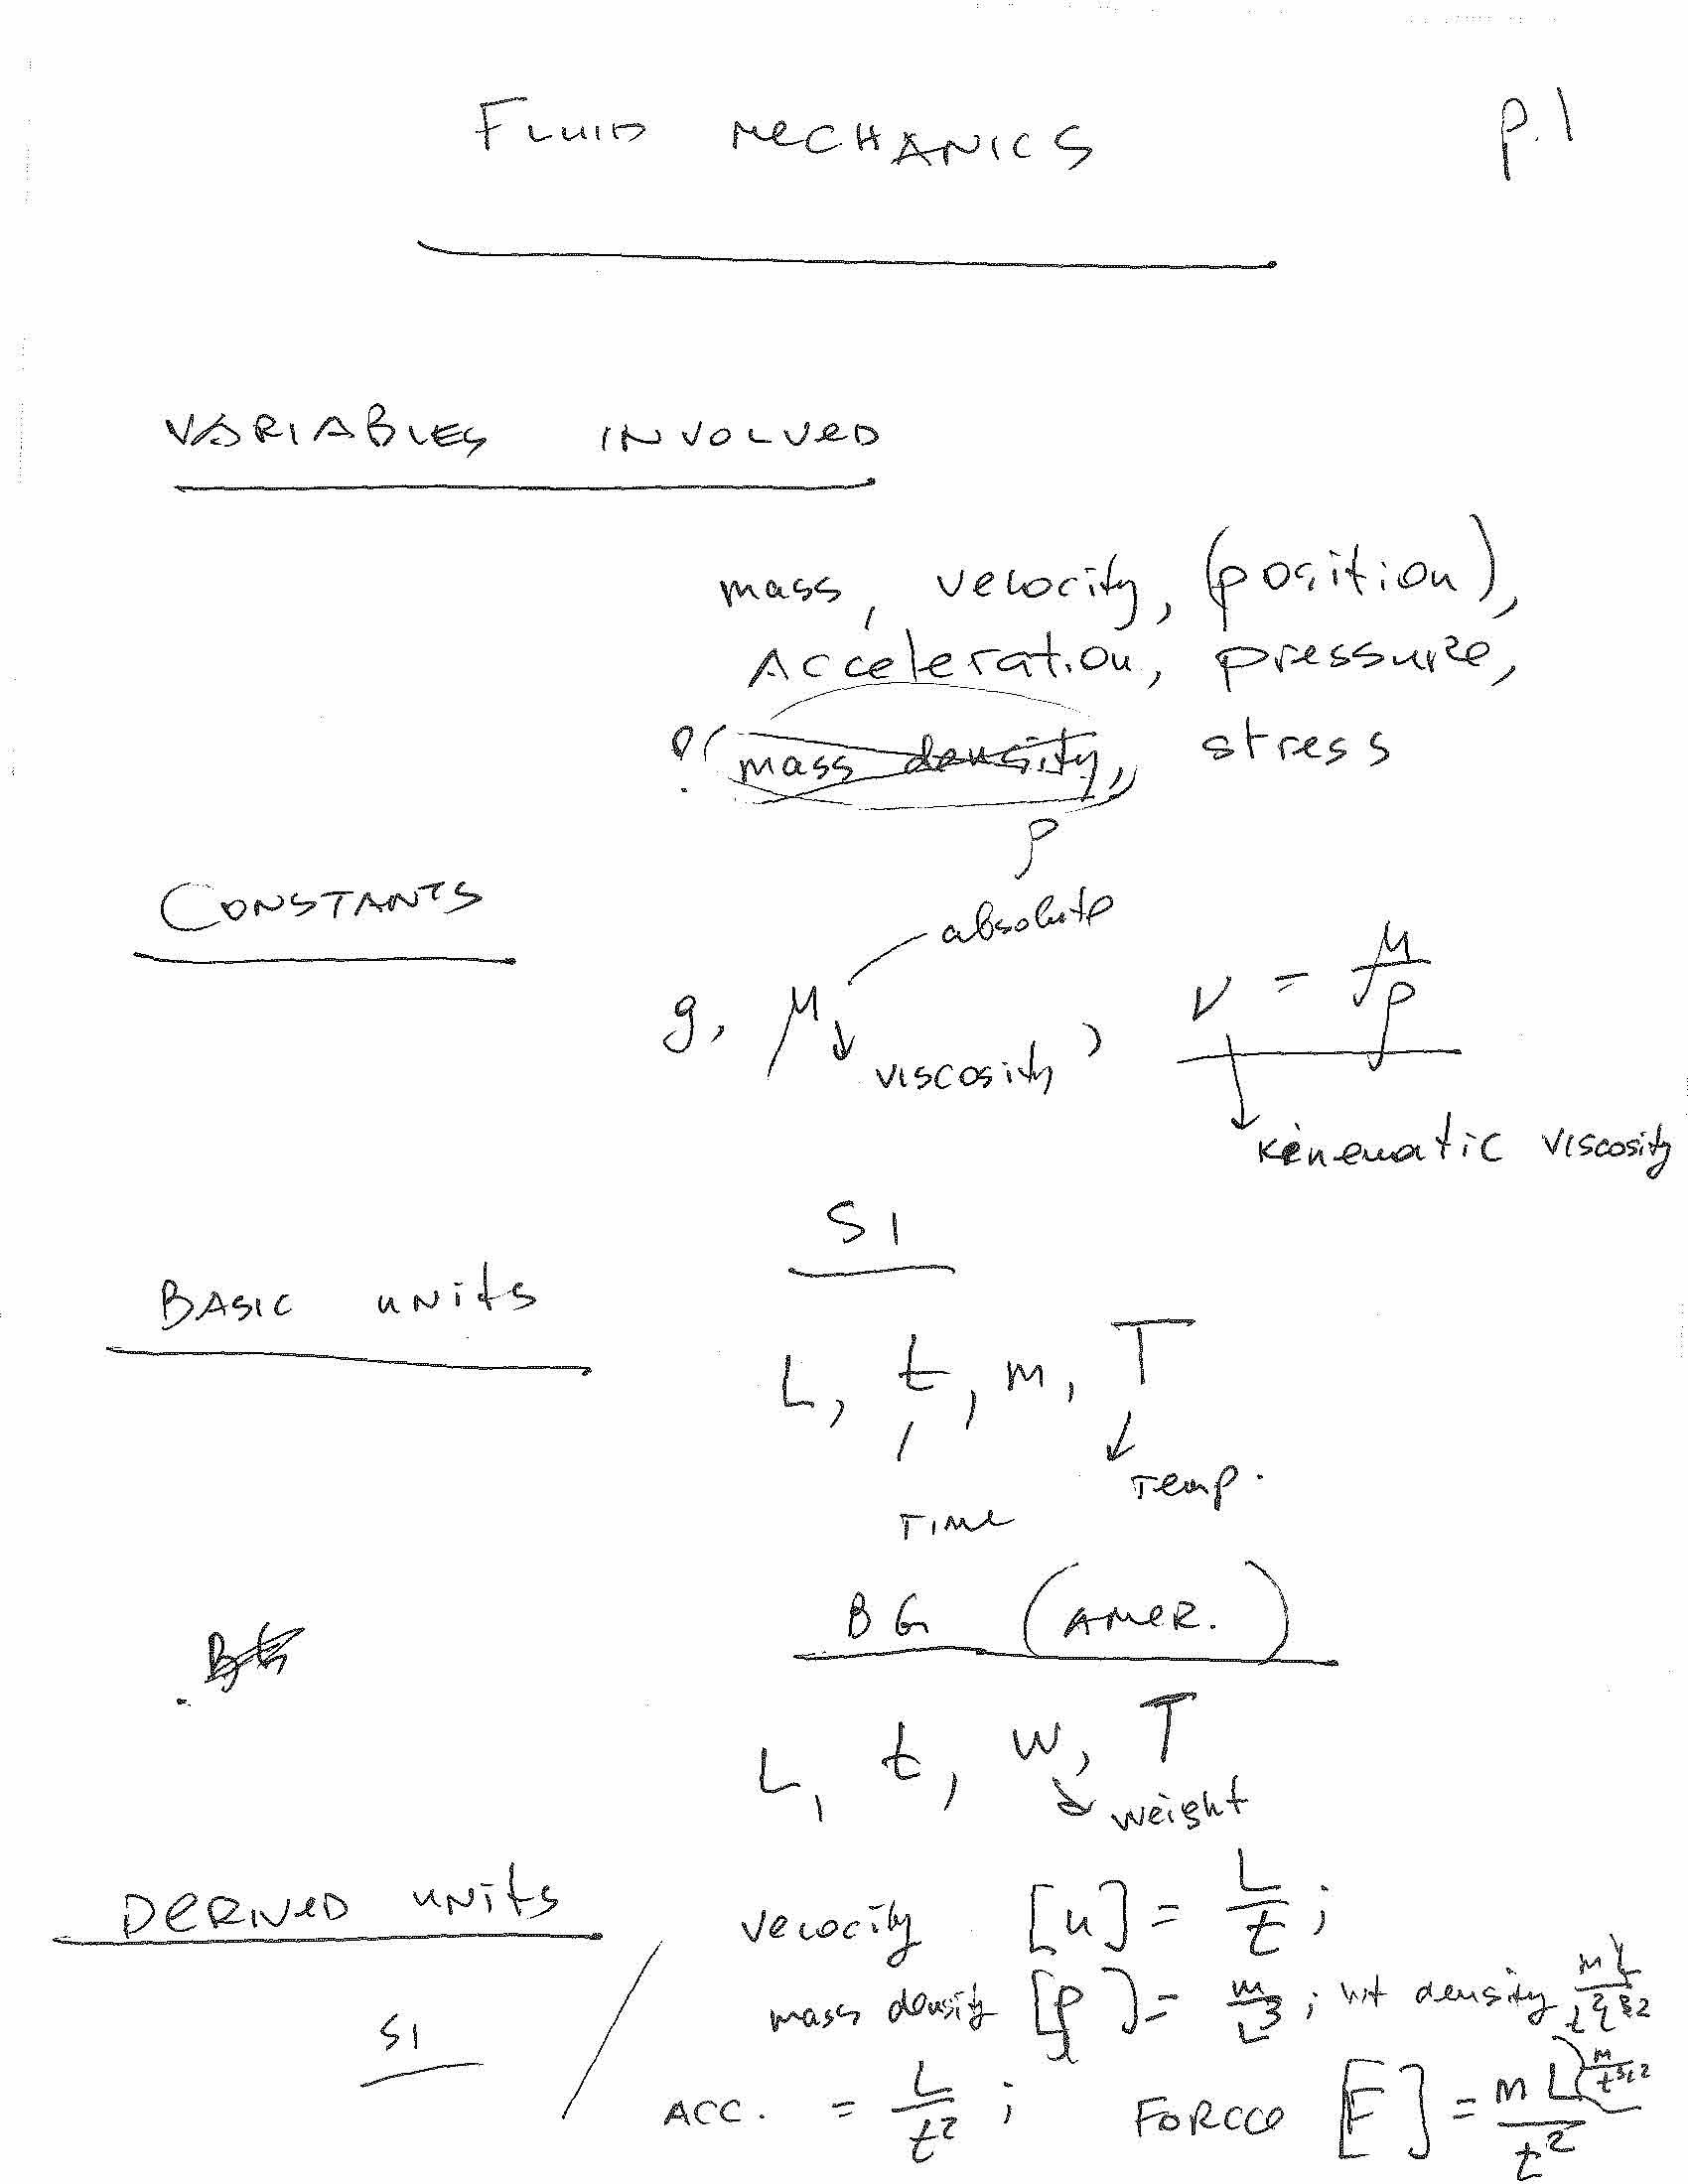 FLUID MECHANICS p.1
VARIABLES INVOLVED
mass, velocity, (position),
Acceleration, pressure,
?(mass density,) stress
ρ
CONSTANTS
absolute
g, μ viscosity, ν = μ/ρ
kinematic viscosity
SI
BASIC UNITS
L, t, m, T
Temp.
TIME
BG (AMER.)
BG
L, t, W, T
weight
DERIVED UNITS
velocity [u] = L/t;
SI
mass density [ρ] = m/L³; wt density
ACC. = L/t²; FORCE [F] = mL/t²